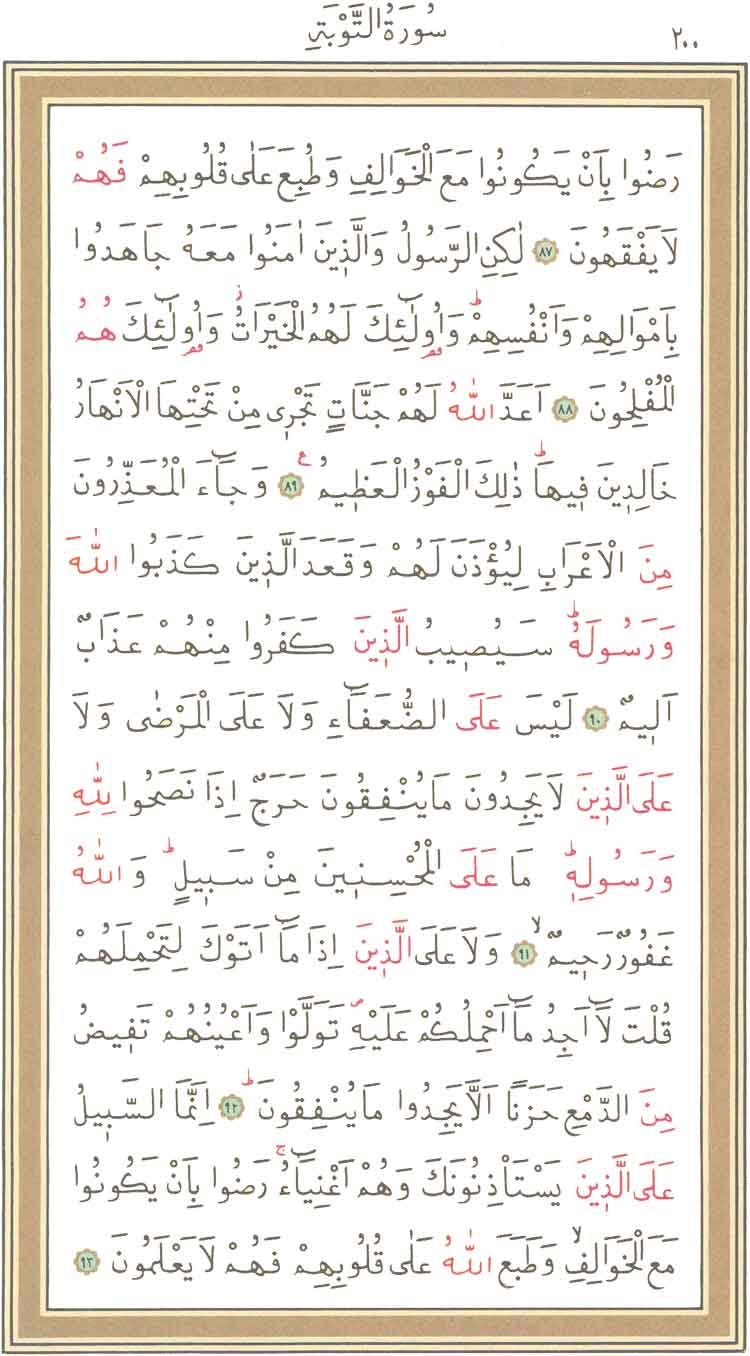 ٢٠٠
سُورَةُ التَّوْبَةِ
رَضُوا بِاَنْ يَكُونُوا مَعَ الْخَوَالِفِ وَطُبِعَ عَلٰى قُلُوبِهِمْ فَهُمْ
لَا يَفْقَهُونَ ٨٧ لٰكِنِ الرَّسُولُ وَالَّذ۪ينَ اٰمَنُوا مَعَهُ جَاهَدُوا
بِاَمْوَالِهِمْ وَاَنْفُسِهِمْۜ وَاُو۬لٰٓئِكَ لَهُمُ الْخَيْرَاتُۘ وَاُو۬لٰٓئِكَ هُمُ
الْمُفْلِحُونَ ٨٨ اَعَدَّ اللّٰهُ لَهُمْ جَنَّاتٍ تَجْر۪ي مِنْ تَحْتِهَا الْاَنْهَارُ
خَالِد۪ينَ ف۪يهَاۜ ذٰلِكَ الْفَوْزُ الْعَظ۪يمُ۟ ٨٩ وَجَٓاءَ الْمُعَذِّرُونَ
مِنَ الْاَعْرَابِ لِيُؤْذَنَ لَهُمْ وَقَعَدَ الَّذ۪ينَ كَذَبُوا اللّٰهَ
وَرَسُولَهُۜ سَيُص۪يبُ الَّذ۪ينَ كَفَرُوا مِنْهُمْ عَذَابٌ
اَل۪يمٌ ٩٠ لَيْسَ عَلَى الضُّعَفَٓاءِ وَلَا عَلَى الْمَرْضٰى وَلَا
عَلَى الَّذ۪ينَ لَا يَجِدُونَ مَا يُنْفِقُونَ حَرَجٌ اِذَا نَصَحُوا لِلّٰهِ
وَرَسُولِه۪ۜ مَا عَلَى الْمُحْسِن۪ينَ مِنْ سَب۪يلٍۜ وَاللّٰهُ
غَفُورٌ رَح۪يمٌۙ ٩١ وَلَا عَلَى الَّذ۪ينَ اِذَا مَٓا اَتَوْكَ لِتَحْمِلَهُمْ
قُلْتَ لَٓا اَجِدُ مَٓا اَحْمِلُكُمْ عَلَيْهِۖ تَوَلَّوْا وَاَعْيُنُهُمْ تَف۪يضُ
مِنَ الدَّمْعِ حَزَناً اَلَّا يَجِدُوا مَا يُنْفِقُونَۜ ٩٢ اِنَّمَا السَّب۪يلُ
عَلَى الَّذ۪ينَ يَسْتَأْذِنُونَكَ وَهُمْ اَغْنِيَٓاءُۚ رَضُوا بِاَنْ يَكُونُوا
مَعَ الْخَوَالِفِۙ وَطَبَعَ اللّٰهُ عَلٰى قُلُوبِهِمْ فَهُمْ لَا يَعْلَمُونَ ٩٣